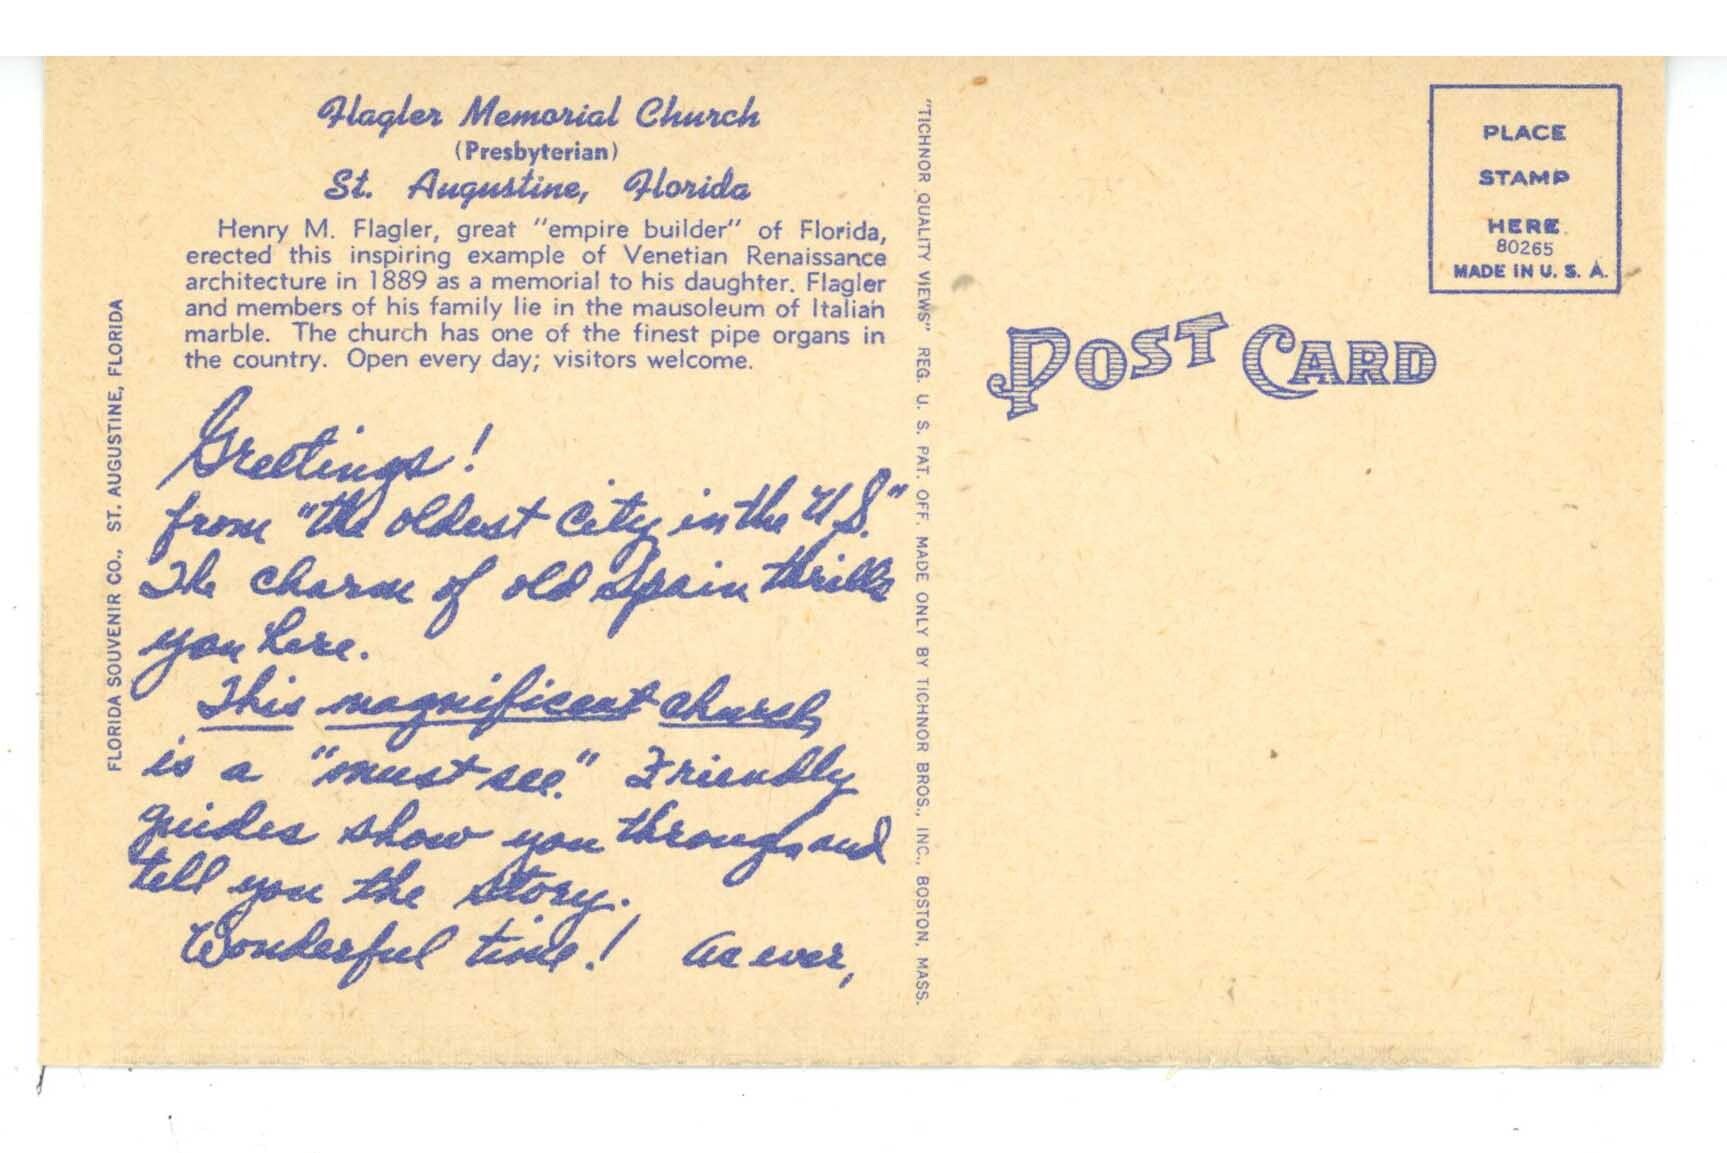 Flagler Memorial Church
(Presbyterian)
St. Augustine, Florida
Henry M. Flagler, great "empire builder" of Florida,
erected this inspiring example of Venetian Renaissance
architecture in 1889 as a memorial to his daughter. Flagler
and members of his family lie in the mausoleum of Italian
marble. The church has one of the finest pipe organs in
the country. Open every day; visitors welcome.
Greetings!
from "the oldest City in the U.S."
The charm of old Spain thrills
you here.
This magnificent church
is a "must see." Friendly
guides show you through and
tell you the story.
Wonderful time! As ever,
FLORIDA SOUVENIR CO., ST. AUGUSTINE, FLORIDA
"TICHNOR QUALITY VIEWS" REG. U. S. PAT. OFF. MADE ONLY BY TICHNOR BROS., INC., BOSTON, MASS.
POST CARD
PLACE
STAMP
HERE
80265
MADE IN U. S. A.